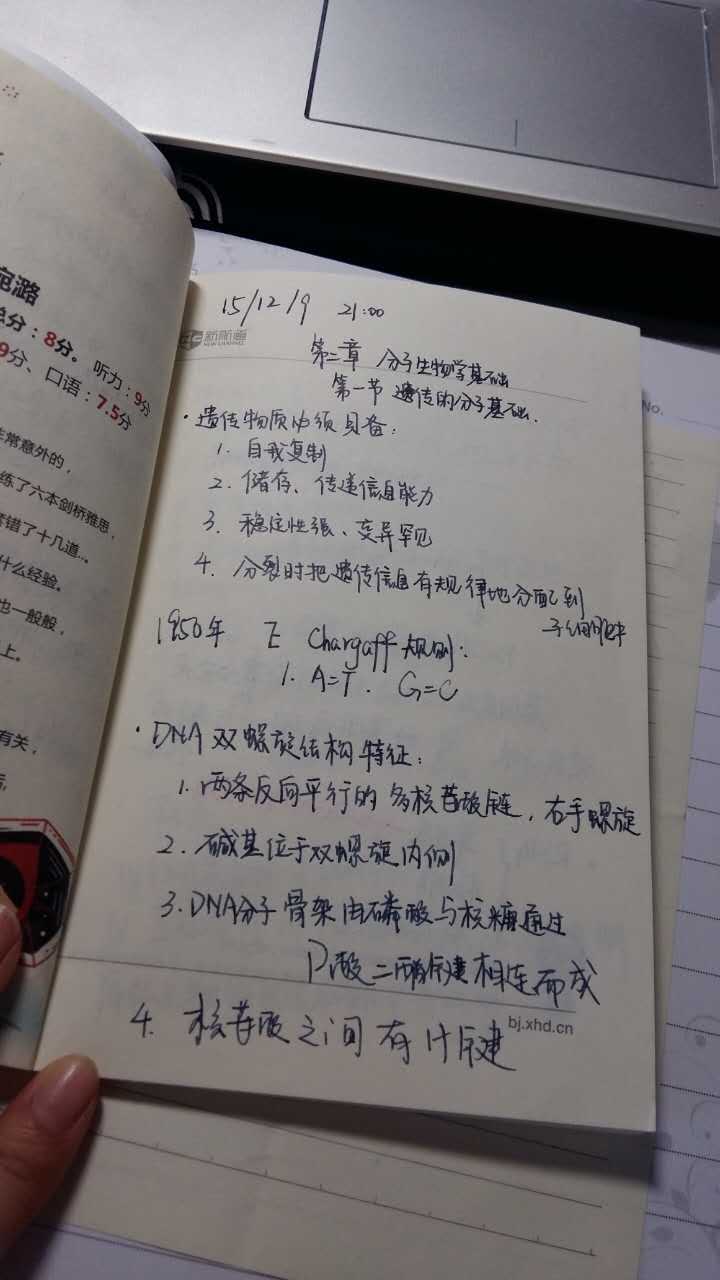 宛潞
总分：8分。 听力：9分
9分、口语：7.5分
非常意外的，
练了六本剑桥雅思，
套错了十几道…。
什么经验。
也一般般，
上。
有关，
15/12/9 21:00
新航道
NEW CHANNEL
第二章 分子生物学基础
第一节 遗传的分子基础.
·遗传物质必须具备：
1. 自我复制
2. 储存、传递信息能力
3. 稳定性强、变异罕见
4. 分裂时把遗传信息有规律地分配到
子细胞中
1950年 E Chargaff 规则：
1. A=T. G=C
·DNA双螺旋结构特征：
1. 两条反向平行的多核苷酸链，右手螺旋
2. 碱基位于双螺旋内侧
3. DNA分子骨架由磷酸与核糖通过
P酸二酯键相连而成
4. 核苷酸之间有H键
bj.xhd.cn
No.